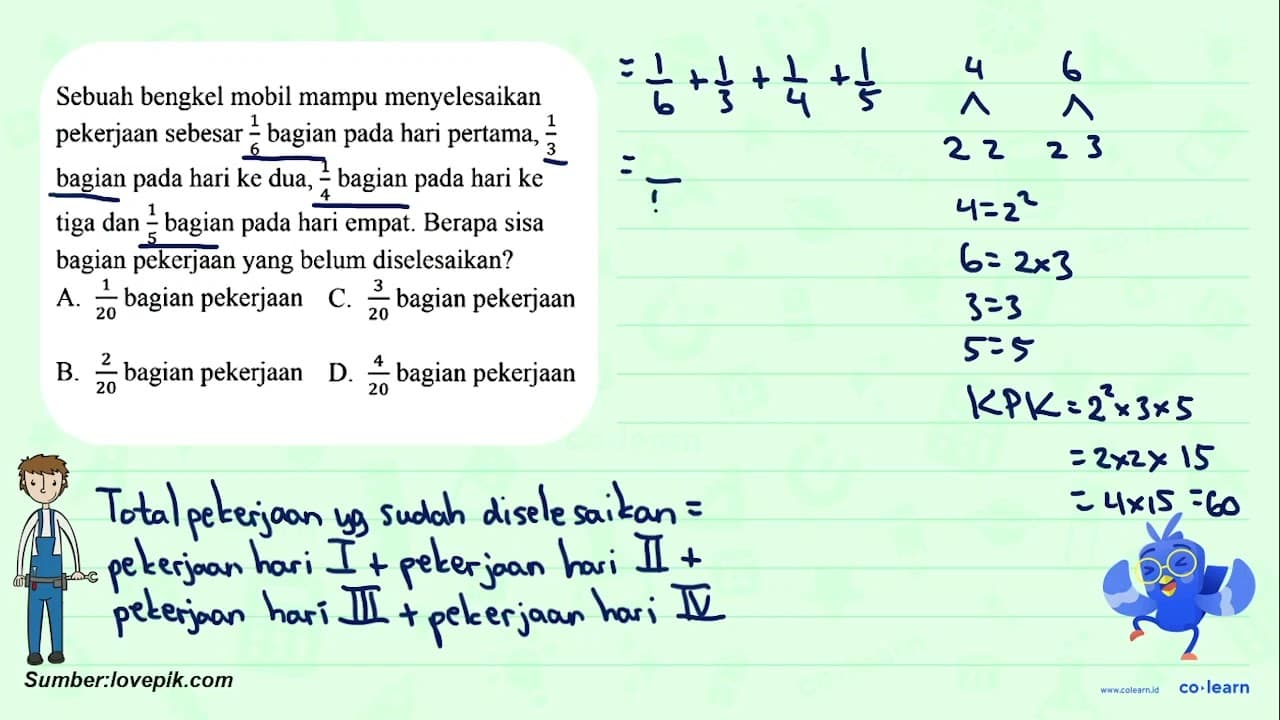 Sebuah bengkel mobil mampu menyelesaikan
pekerjaan sebesar 1/6 bagian pada hari pertama, 1/3
bagian pada hari ke dua, 1/4 bagian pada hari ke
tiga dan 1/5 bagian pada hari empat. Berapa sisa
bagian pekerjaan yang belum diselesaikan?
A. 1/20 bagian pekerjaan C. 3/20 bagian pekerjaan
B. 2/20 bagian pekerjaan D. 4/20 bagian pekerjaan
Total pekerjaan yg sudah diselesaikan =
pekerjaan hari I + pekerjaan hari II +
pekerjaan hari III + pekerjaan hari IV
= 1/6 + 1/3 + 1/4 + 1/5
=
4 6
2 2 2 3
4 = 2²
6 = 2 × 3
3 = 3
5 = 5
KPK = 2² × 3 × 5
= 2 × 2 × 15
= 4 × 15 = 60
Sumber:lovepik.com
www.colearn.id co·learn